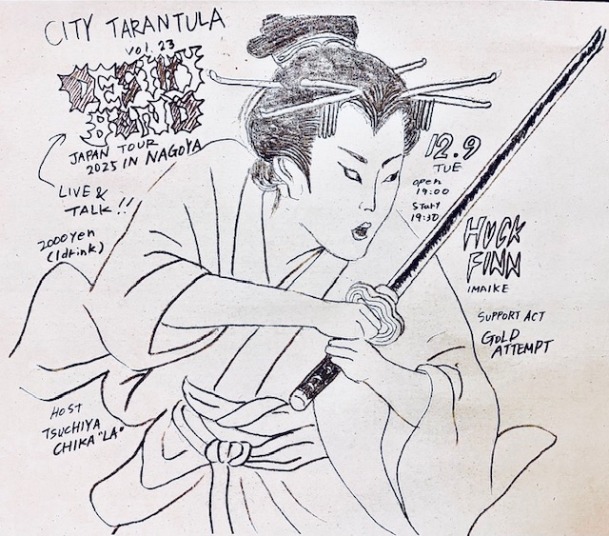 CITY TARANTULA
VOL. 23
JAPAN TOUR
2025 IN NAGOYA
LIVE &
TALK!!
2000yen
(1drink)
12.9
TUE
open
19:00
Start
19:30
HUCK
FINN
IMAIKE
SUPPORT ACT
GOLD
ATTEMPT
HOST
TSUCHIYA
CHIKA "LA"